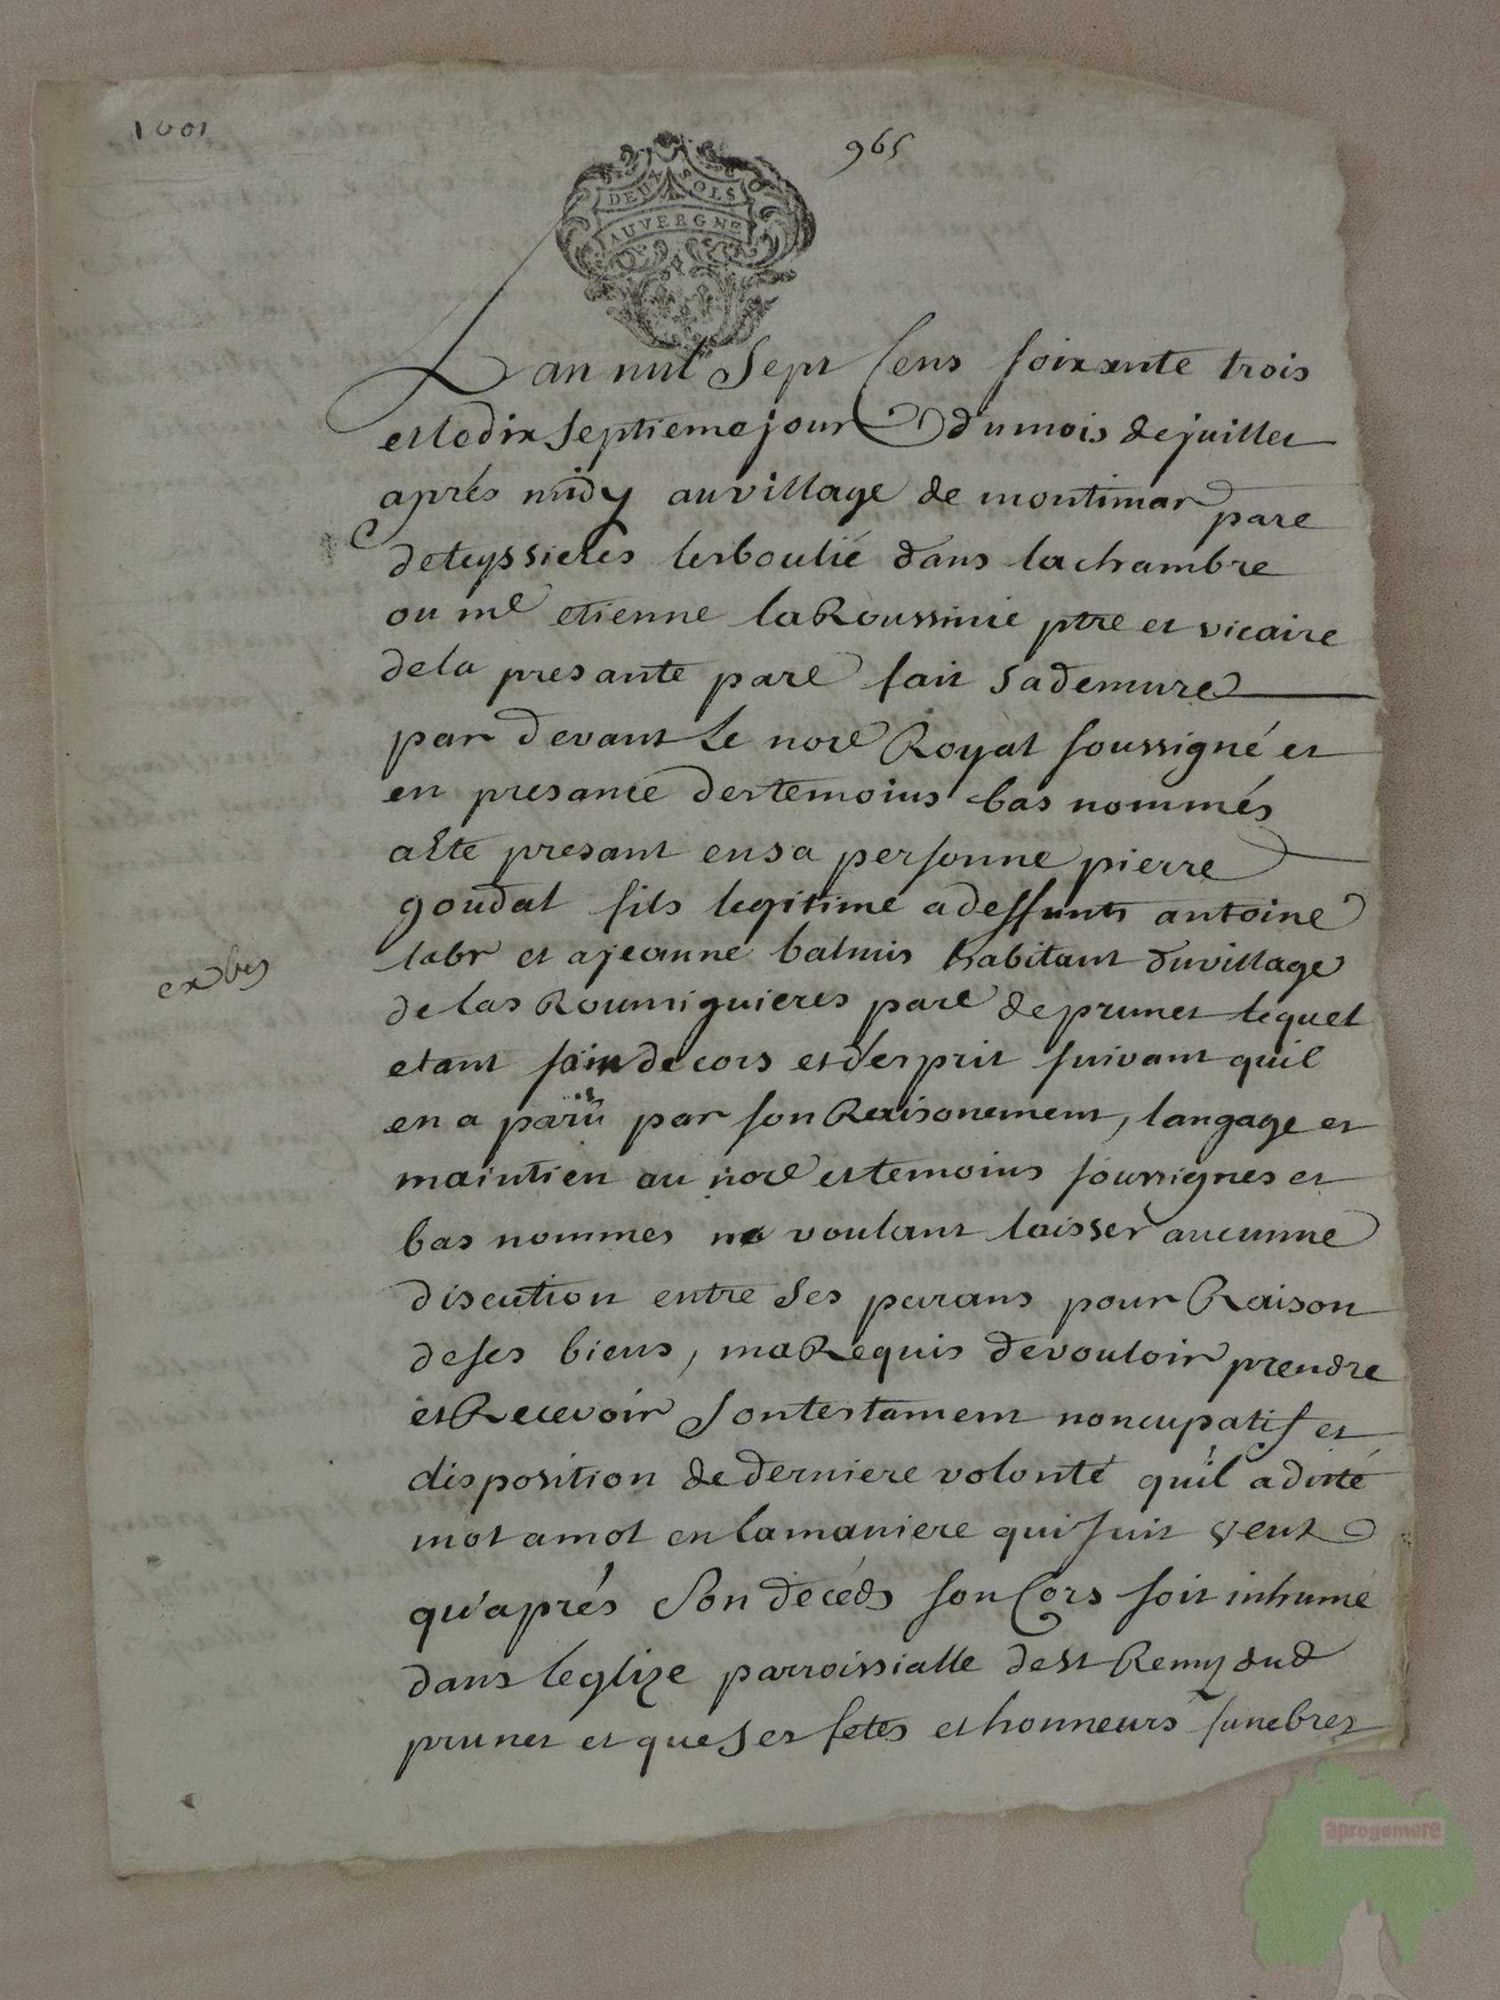 1001
965
DEUX SOLS
AUVERGNE
Lan mil Sept Cens soixante trois
et le dix Septieme jour du mois de juillet
aprés midy au village de montimar pare
de teyssieres lesboulié dans la chambre
ou me etienne laRoussinie ptre et vicaire
de la presante pare fait sa demure
par devant Le nore Royal soussigné et
en presance des temoins bas nommés
a Eté presant en sa personne pierre
goudal fils legitime a deffunts antoine
labr et a jeanne balmis habitant du village
de las Roumiguieres pare de prunet lequel
etant sain de cors et d'esprit suivant quil
en a parû par son Raisonement, langage et
maintien au nore et temoins soussignes et
bas nommes ne voulant laisser aucunne
discution entre Ses parans pour Raison
de ses biens, ma Requis de vouloir prendre
et Recevoir Son testament noncupatif et
disposition de derniere volonté qu'il a dicté
mot a mot en la maniere qui suit veut
qu'aprés Son decéds son Cors soit inhumé
dans leglize parroissialle de st Remy dud
prunet et que Ses fetes et honneurs funebres
aprogemere